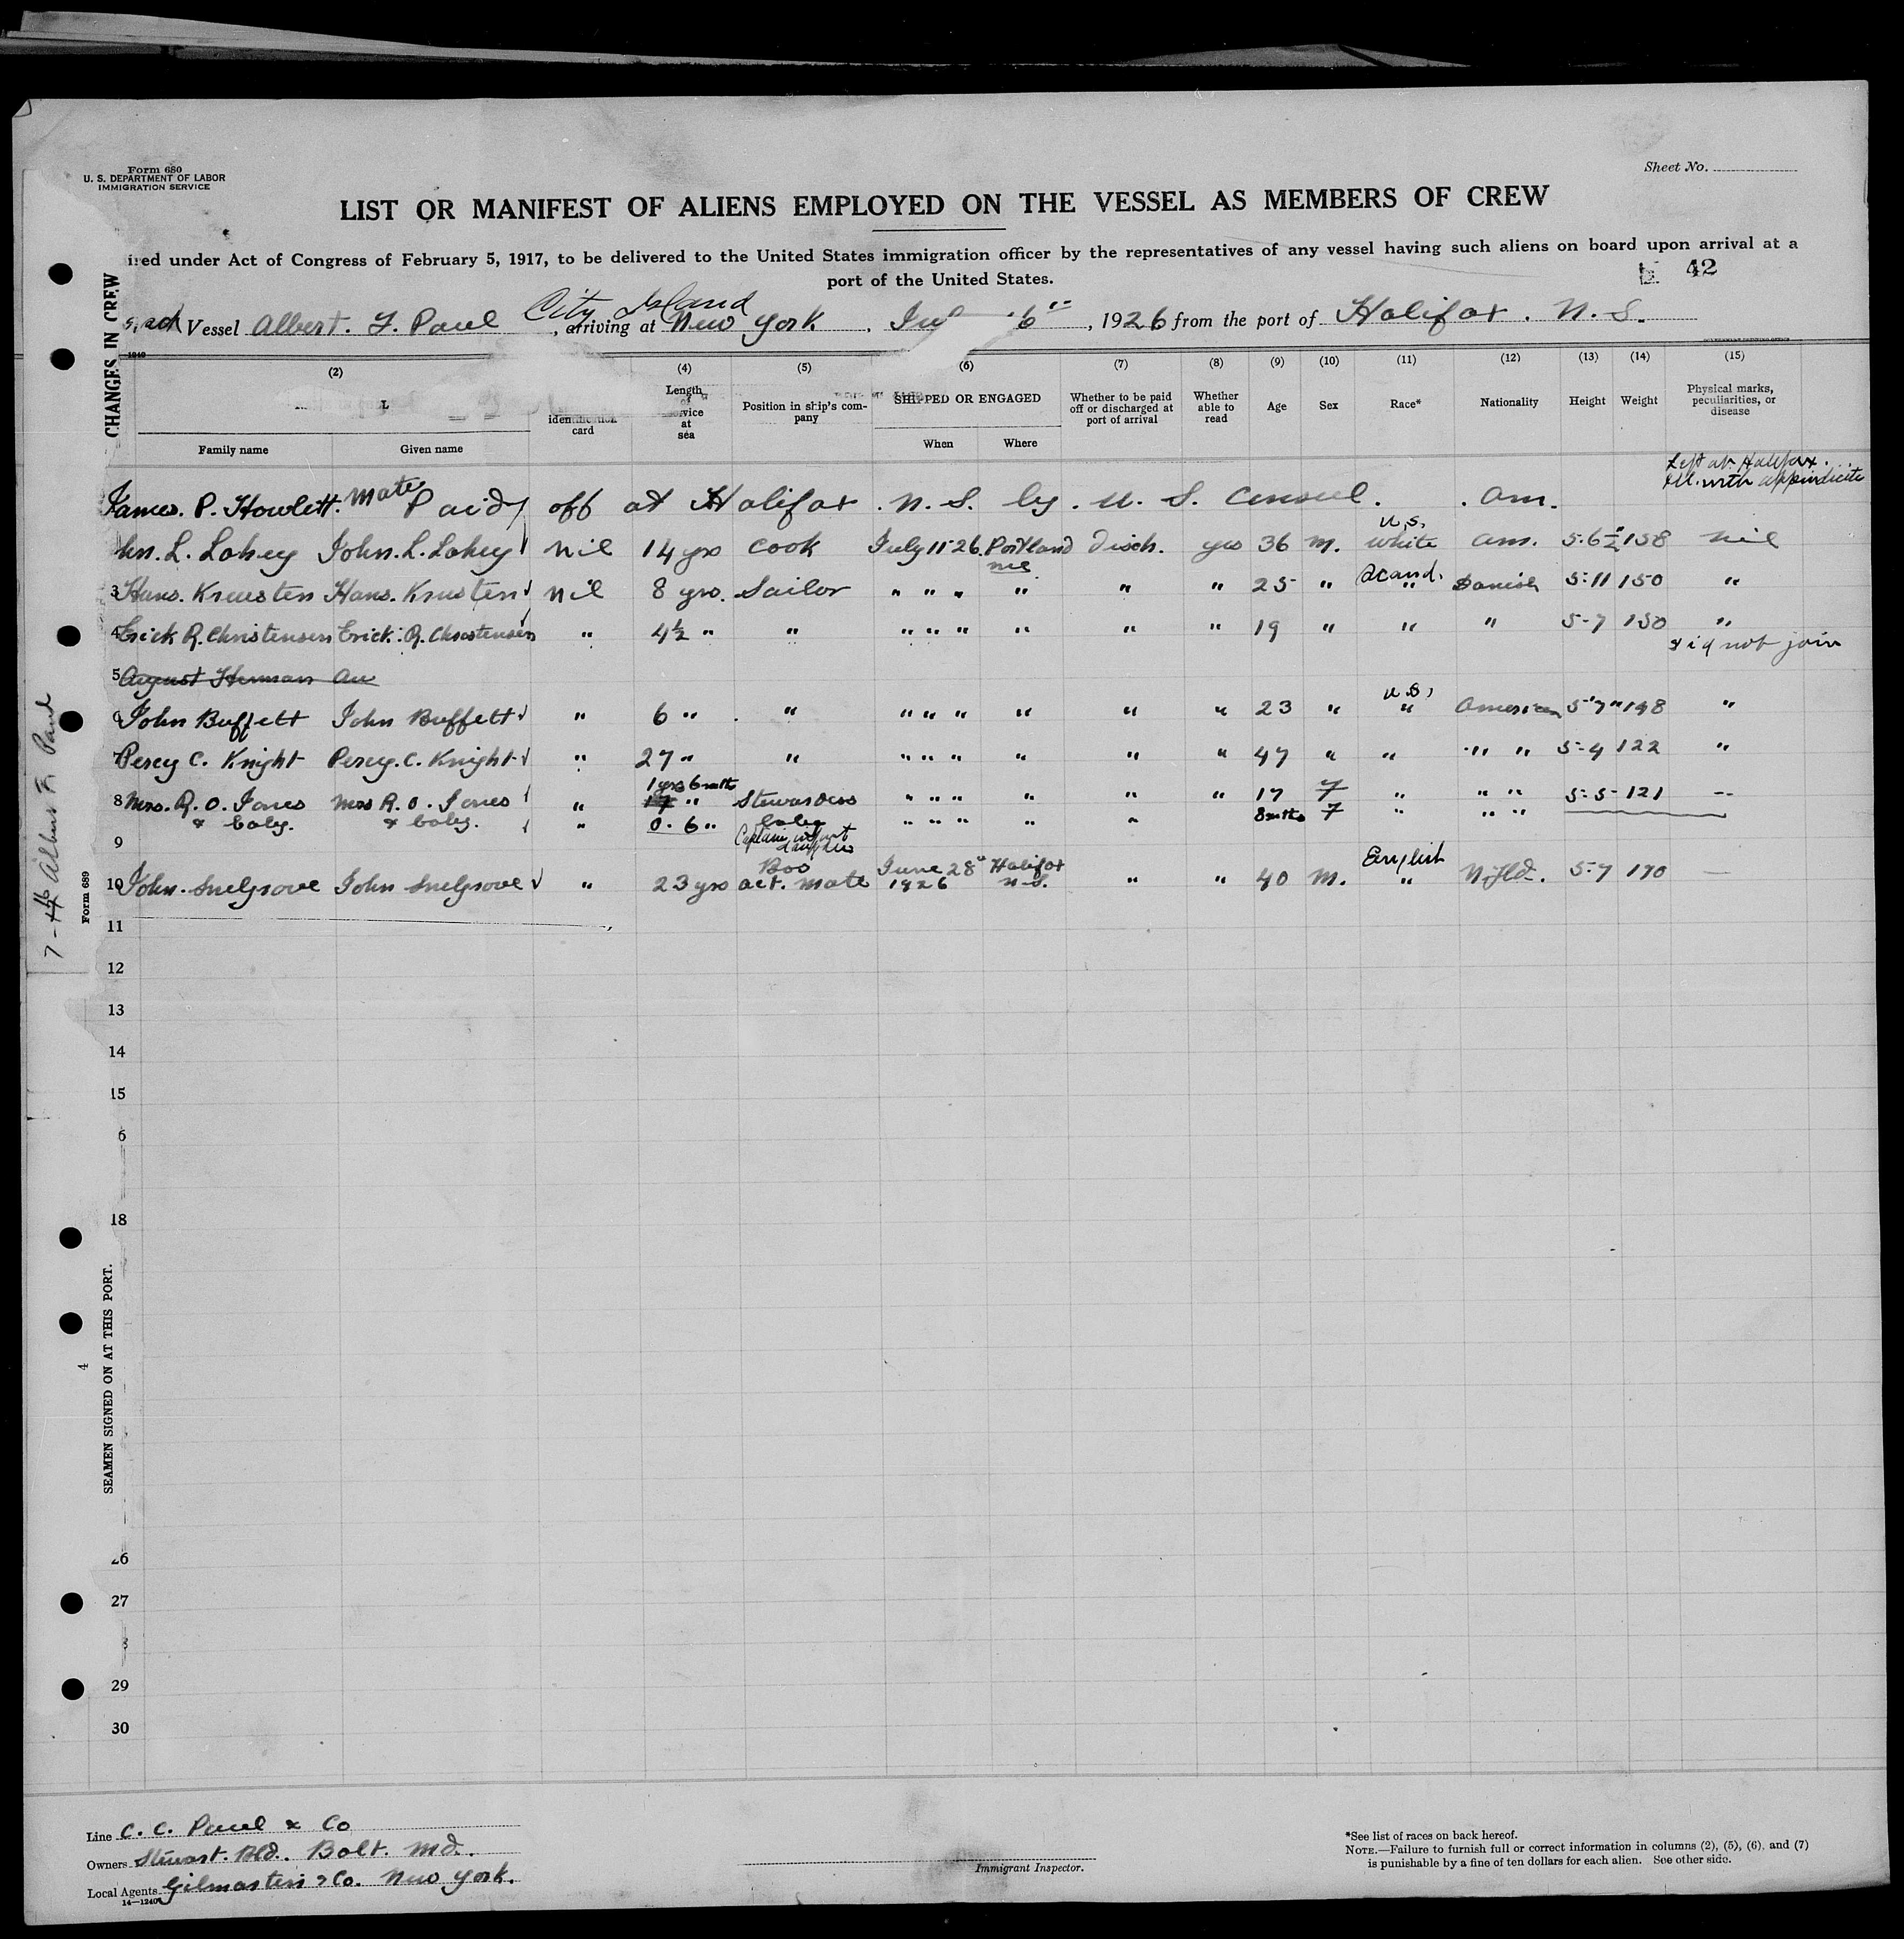 Form 680
U. S. DEPARTMENT OF LABOR
IMMIGRATION SERVICE
Sheet No.
LIST OR MANIFEST OF ALIENS EMPLOYED ON THE VESSEL AS MEMBERS OF CREW
ired under Act of Congress of February 5, 1917, to be delivered to the United States immigration officer by the representatives of any vessel having such aliens on board upon arrival at a
port of the United States.
42
City Island
Vessel Albert. F. Paul, arriving at New York, 6", 1926 from the port of Halifax. N. S.
CHANGES IN CREW
(2) (4) (5) (6) (7) (8) (9) (10) (11) (12) (13) (14) (15)
Family name Given name
identification card
Length of service at sea
Position in ship's company
SHIPPED OR ENGAGED
When Where
Whether to be paid off or discharged at port of arrival
Whether able to read
Age Sex Race* Nationality Height Weight
Physical marks, peculiarities, or disease
Left at Halifax.
Ill. with appindicite
James. P. Howlett. Mate Paid off at Halifax. N. S. by. U. S. Consul. . Am.
hn. L. Lahey John. L. Lahey nil 14 yrs Cook July 11-26. Portland me Disch. yes 36 M. U.S. White Am. 5-6½ 158 nil
3 Hans. Kreusten Hans. Kreusten nil 8 yrs. Sailor " " " " " " 25 " Scand. " Danish 5-11 150 "
4 Erick R. Christensen Erick. R. Christensen " 4½ " " " " " " " " 19 " " " 5-7 150 "
did not join
5 August Herman Au
6 John Buffett John Buffett " 6 " " " " " " " " 23 " U.S. " American 5-7" 148 "
7 Percy C. Knight Percy. C. Knight " 27 " " " " " " " " 47 " " " " 5-4 122 "
8 Mrs. R. O. Jones Mrs R. O. Jones " 1 yrs 6 mths 17 " Stewardess " " " " " " 17 F " " " 5-5- 121 --
& baby. & baby. " 0. 6 " baby " " " " " 8 mths F " " "
9 Captain infant daughter
10 John. Snelgrove John Snelgrove " 23 yrs Bos act. mate June 28" 1926 Halifax N.S. " " 40 M. English " Nfld. 5-7 170 —
11
12
13
14
15
6
18
26
27
29
30
7-46 Albert F. Paul
Form 689
4
SEAMEN SIGNED ON AT THIS PORT.
Line C. C. Paul & Co
Owners Stewart. Bld. Balt. Md.
Local Agents Gilmartin & Co. New York.
14—1240
Immigrant Inspector.
*See list of races on back hereof.
NOTE.—Failure to furnish full or correct information in columns (2), (5), (6), and (7)
is punishable by a fine of ten dollars for each alien. See other side.